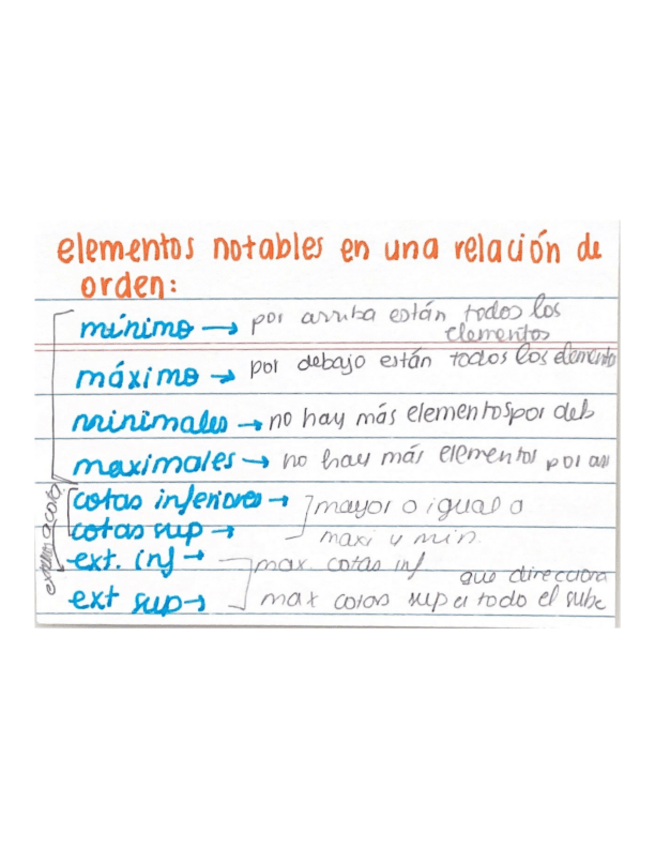 elementos notables en una relación de
orden:
mínimo → por arriba están todos los
elementos
máximo → por debajo están todos los elemento
minimales → no hay más elementos por deb
maximales → no hay más elementos por arr
cotas inferiores → mayor o igual a
cotas sup → maxi y min.
ext. inf → max cotas inf
que direcciona
ext sup → max cotas sup a todo el subc